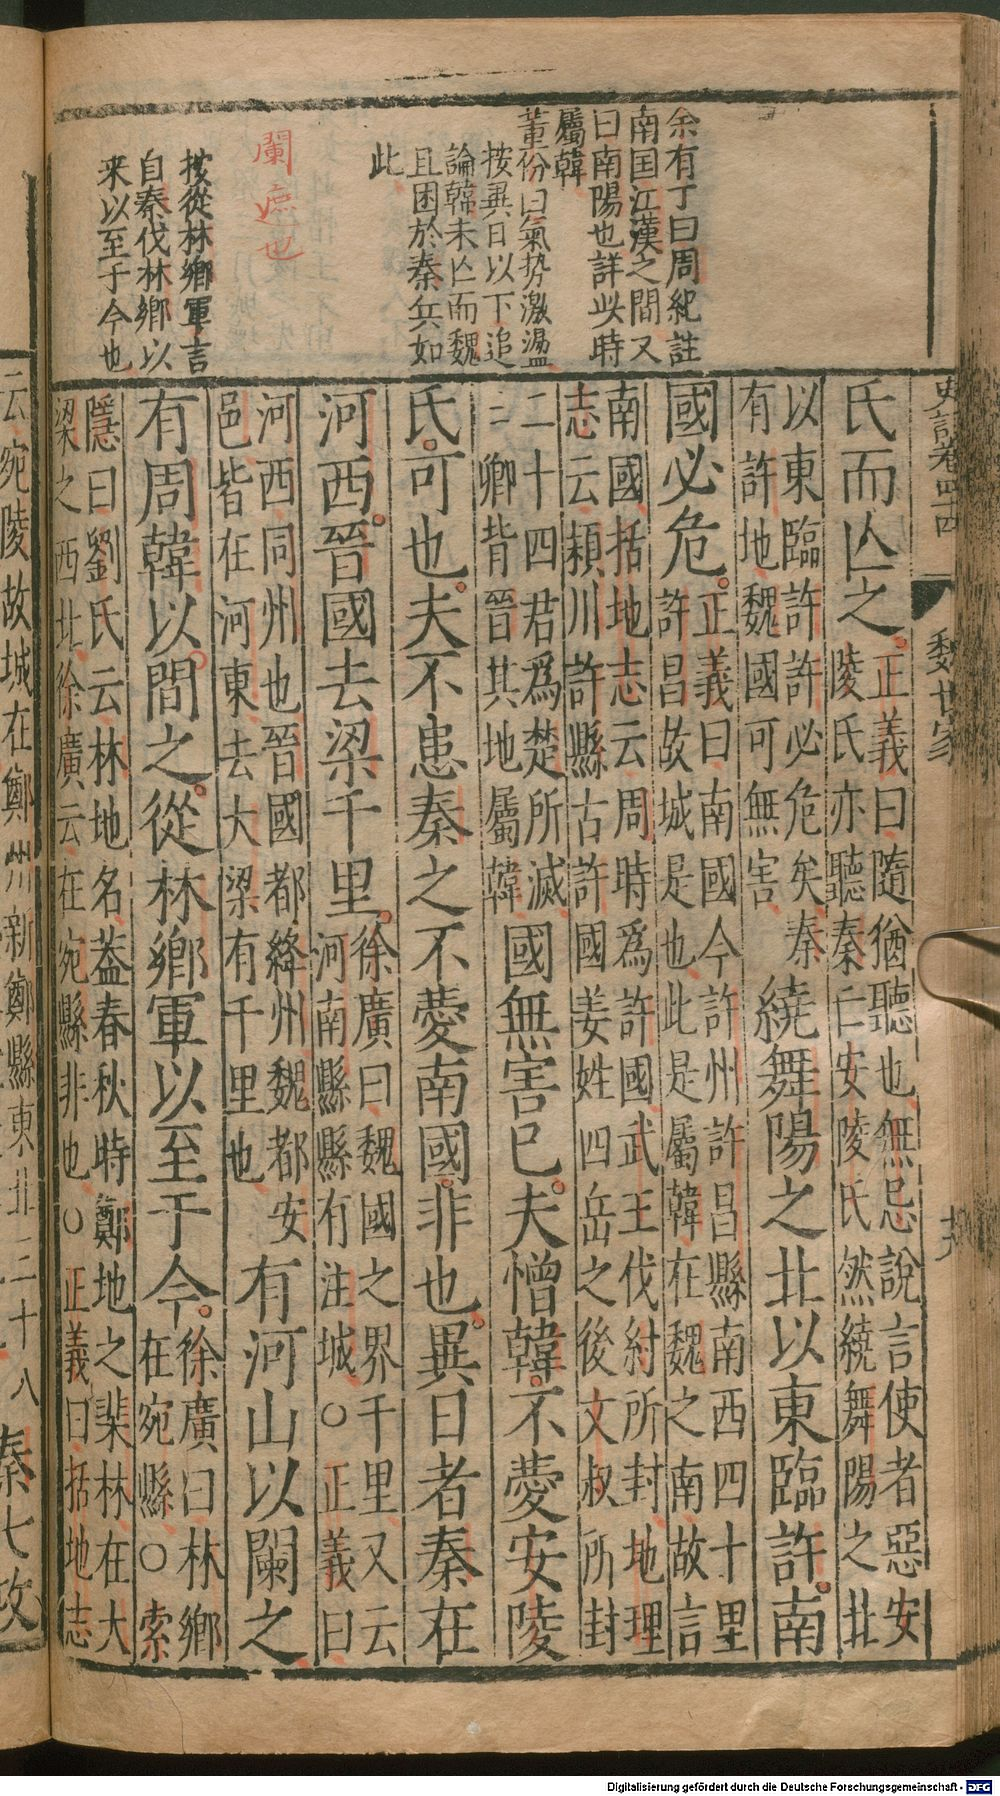 史記卷四十四
魏世家
余有丁曰周紀註
南国江漢之間又
曰南陽也詳此時
屬韓
董份曰氣势激盪
按異日以下追
論韓未亾而魏
且困於秦兵如
此
闌遮也
按從林鄉軍言
自秦伐林鄉以
来以至于今也
氏而亾之正義曰隨猶聽也無忌說言使者惡安
陵氏亦聽秦亡安陵氏然繞舞陽之北
以東臨許許必危矣秦
有許地魏國可無害
繞舞陽之北以東臨許南
國必危正義曰南國今許州許昌縣南西四十里
許昌故城是也此是屬韓在魏之南故言
南國括地志云周時為許國武王伐紂所封地理
志云潁川許縣古許國姜姓四岳之後文叔所封
二十四君爲楚所滅
三卿背晉其地屬韓
國無害巳夫憎韓不愛安陵
氏可也夫不患秦之不愛南國非也異日者秦在
河西晉國去梁千里徐廣曰魏國之界千里又云
河南縣縣有注城○正義曰
河西同州也晉國都絳州魏都安
邑皆在河東去大梁有千里也
有河山以闌之
有周韓以間之從林鄉軍以至于今徐廣曰林鄉
在宛縣○索
隱曰劉氏云林地名葢春秋時鄭地之棐林在大
梁之西北徐廣云在宛縣非也○正義曰括地志
云宛陵故城在鄭州新鄭縣東北三十八
秦七攻
Digitalisierung gefördert durch die Deutsche Forschungsgemeinschaft - DFG